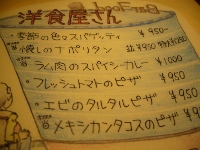 洋食屋さん
・季節の色々スパゲッティ ¥950-
焼しのナポリタン 並¥950
・ラム肉のスパイシーカレー ¥1000
・フレッシュトマトのピザ ¥950
・エビのタルタルピザ ¥950
メキシカンタコスのピザ ¥950